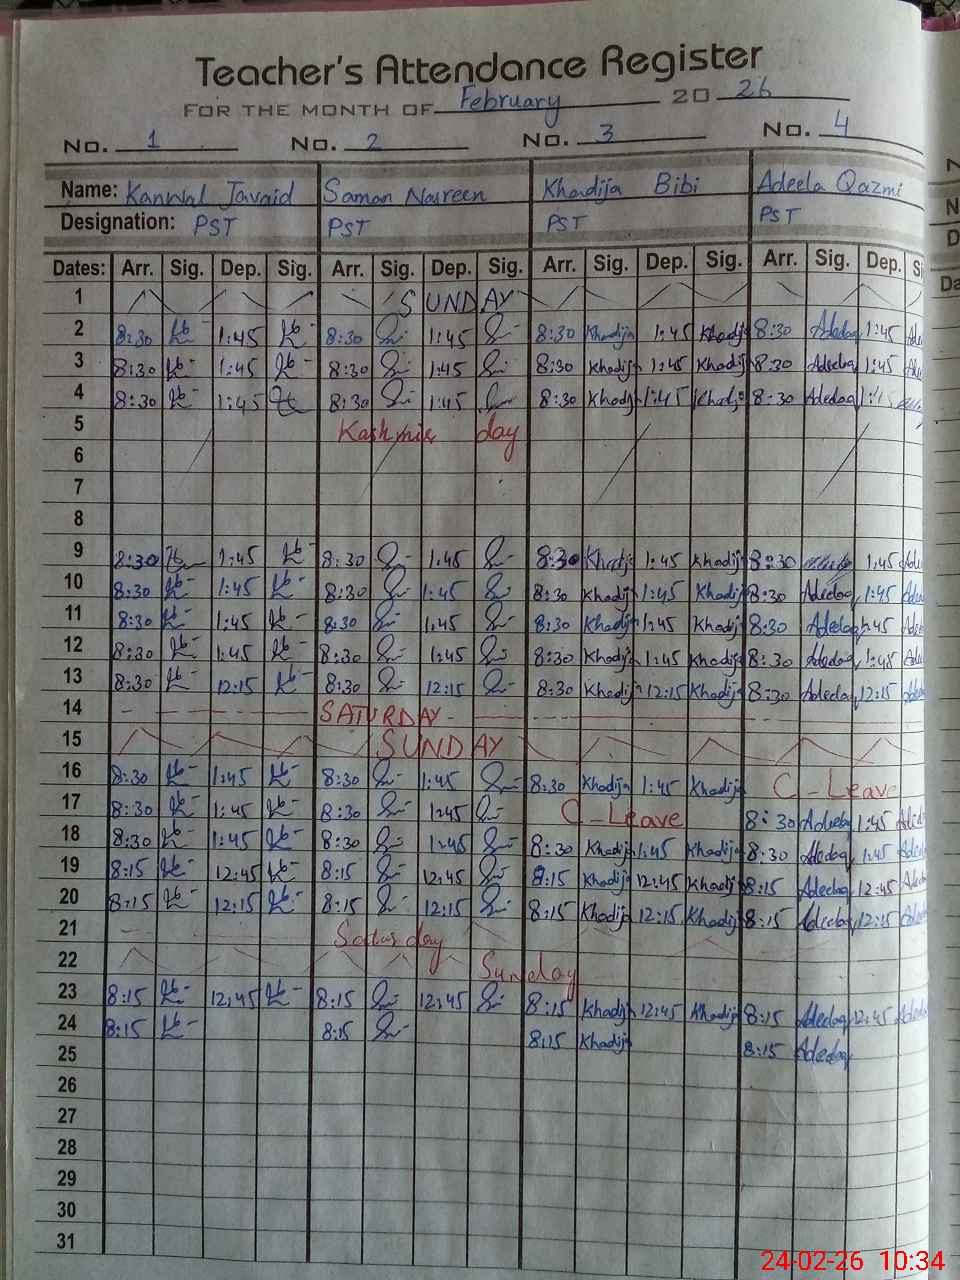 Teacher's Attendance Register
FOR THE MONTH OF February 20 26
No. 1 No. 2 No. 3 No. 4
Name: Kanwal Javaid Saman Naureen Khadija Bibi Adeela Qazmi
Designation: PST PST PST PST
Dates: Arr. Sig. Dep. Sig. Arr. Sig. Dep. Sig. Arr. Sig. Dep. Sig. Arr. Sig. Dep. Si
1 SUNDAY
2 8:30 1:45 8:30 1:45 8:30 Khadija 1:45 Khadija 8:30 Adeelaq 1:45 Ade
3 8:30 1:45 8:30 1:45 8:30 Khadija 1:45 Khadija 8:30 Adeelaq 1:45
4 8:30 1:45 8:30 1:45 8:30 Khadij 1:45 Khadija 8:30 Adeelaq 1:45
5 Kashmir day
6
7
8
9 8:30 1:45 8:30 1:45 8:30 Khadija 1:45 Khadija 8:30 1:45 Ade
10 8:30 1:45 8:30 1:45 8:30 Khadija 1:45 Khadija 8:30 Adeelaq 1:45 Ade
11 8:30 1:45 8:30 1:45 8:30 Khadija 1:45 Khadija 8:30 Adeelaq 1:45 Ade
12 8:30 1:45 8:30 1:45 8:30 Khadija 1:45 Khadija 8:30 Adeelaq 1:45 Ade
13 8:30 12:15 8:30 12:15 8:30 Khadija 12:15 Khadija 8:30 Adeelaq 12:15 Ade
14 SATURDAY
15 SUNDAY
16 8:30 1:45 8:30 1:45 8:30 Khadija 1:45 Khadija C-Leave
17 8:30 1:45 8:30 1:45 C-Leave 8:30 Adeelaq 1:45 Adeela
18 8:30 1:45 8:30 1:45 8:30 Khadija 1:45 Khadija 8:30 Adeelaq 1:45 Adeela
19 8:15 12:45 8:15 12:45 8:15 Khadija 12:45 Khadija 8:15 Adeelaq 12:45 Adeela
20 8:15 12:15 8:15 12:15 8:15 Khadija 12:15 Khadija 8:15 Adeelaq 12:15 Adee
21 Saturday
22 Sunday
23 8:15 12:45 8:15 12:45 8:15 Khadija 12:45 Khadija 8:15 Adeelaq 12:45 Adeela
24 8:15 8:15 8:15 Khadija 8:15 Adeelaq
25
26
27
28
29
30
31
24-02-26 10:34